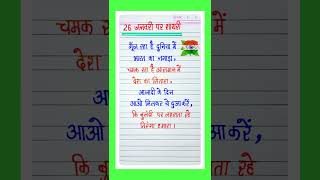 26 जनवरी पर शायरी
गूँज रहा है दुनिया में
भारत का नगाड़ा,
चमक रहा है आसमान में
देश का सितारा,
आजादी के दिन
आओ मिलकर ये दुआ करें,
कि बुलंदी पर लहराता रहे
तिरंगा हमारा।